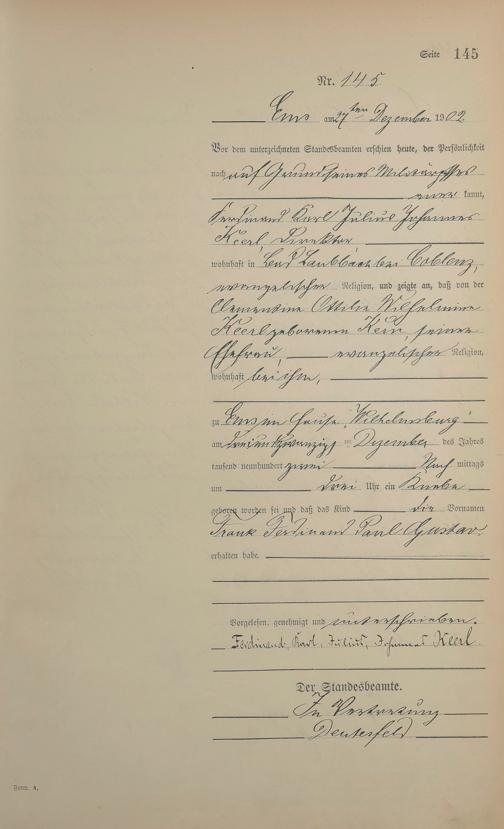 Seite 145
Nr. 145
Ems am 27ten Dezember 1902
Vor dem unterzeichneten Standesbeamten erschien heute, der Persönlichkeit
nach auf Grund seines Militärpasses
kannt,
Ferdinand Karl Julius Johannes
Keerl, Direktor,
wohnhaft in Bad Laubbach bei Coblenz,
evangelischer Religion, und zeigte an, daß von der
Clementine Ottilie Wilhelmine
Keerl geborenen Kern, seiner
Ehefrau, evangelischer Religion,
wohnhaft bei ihm,
zu Ems im Hause "Wilhelmsburg"
am dreiundzwanzigsten Dezember des Jahres
tausend neunhundert zwei Nach mittags
um drei Uhr ein Knabe
geboren worden sei und daß das Kind die Vornamen
Frank Ferdinand Paul Gustav
erhalten habe.
Vorgelesen, genehmigt und unterschrieben.
Ferdinand, Karl, Julius, Johannes Keerl
Der Standesbeamte.
In Vertretung
Form. A.